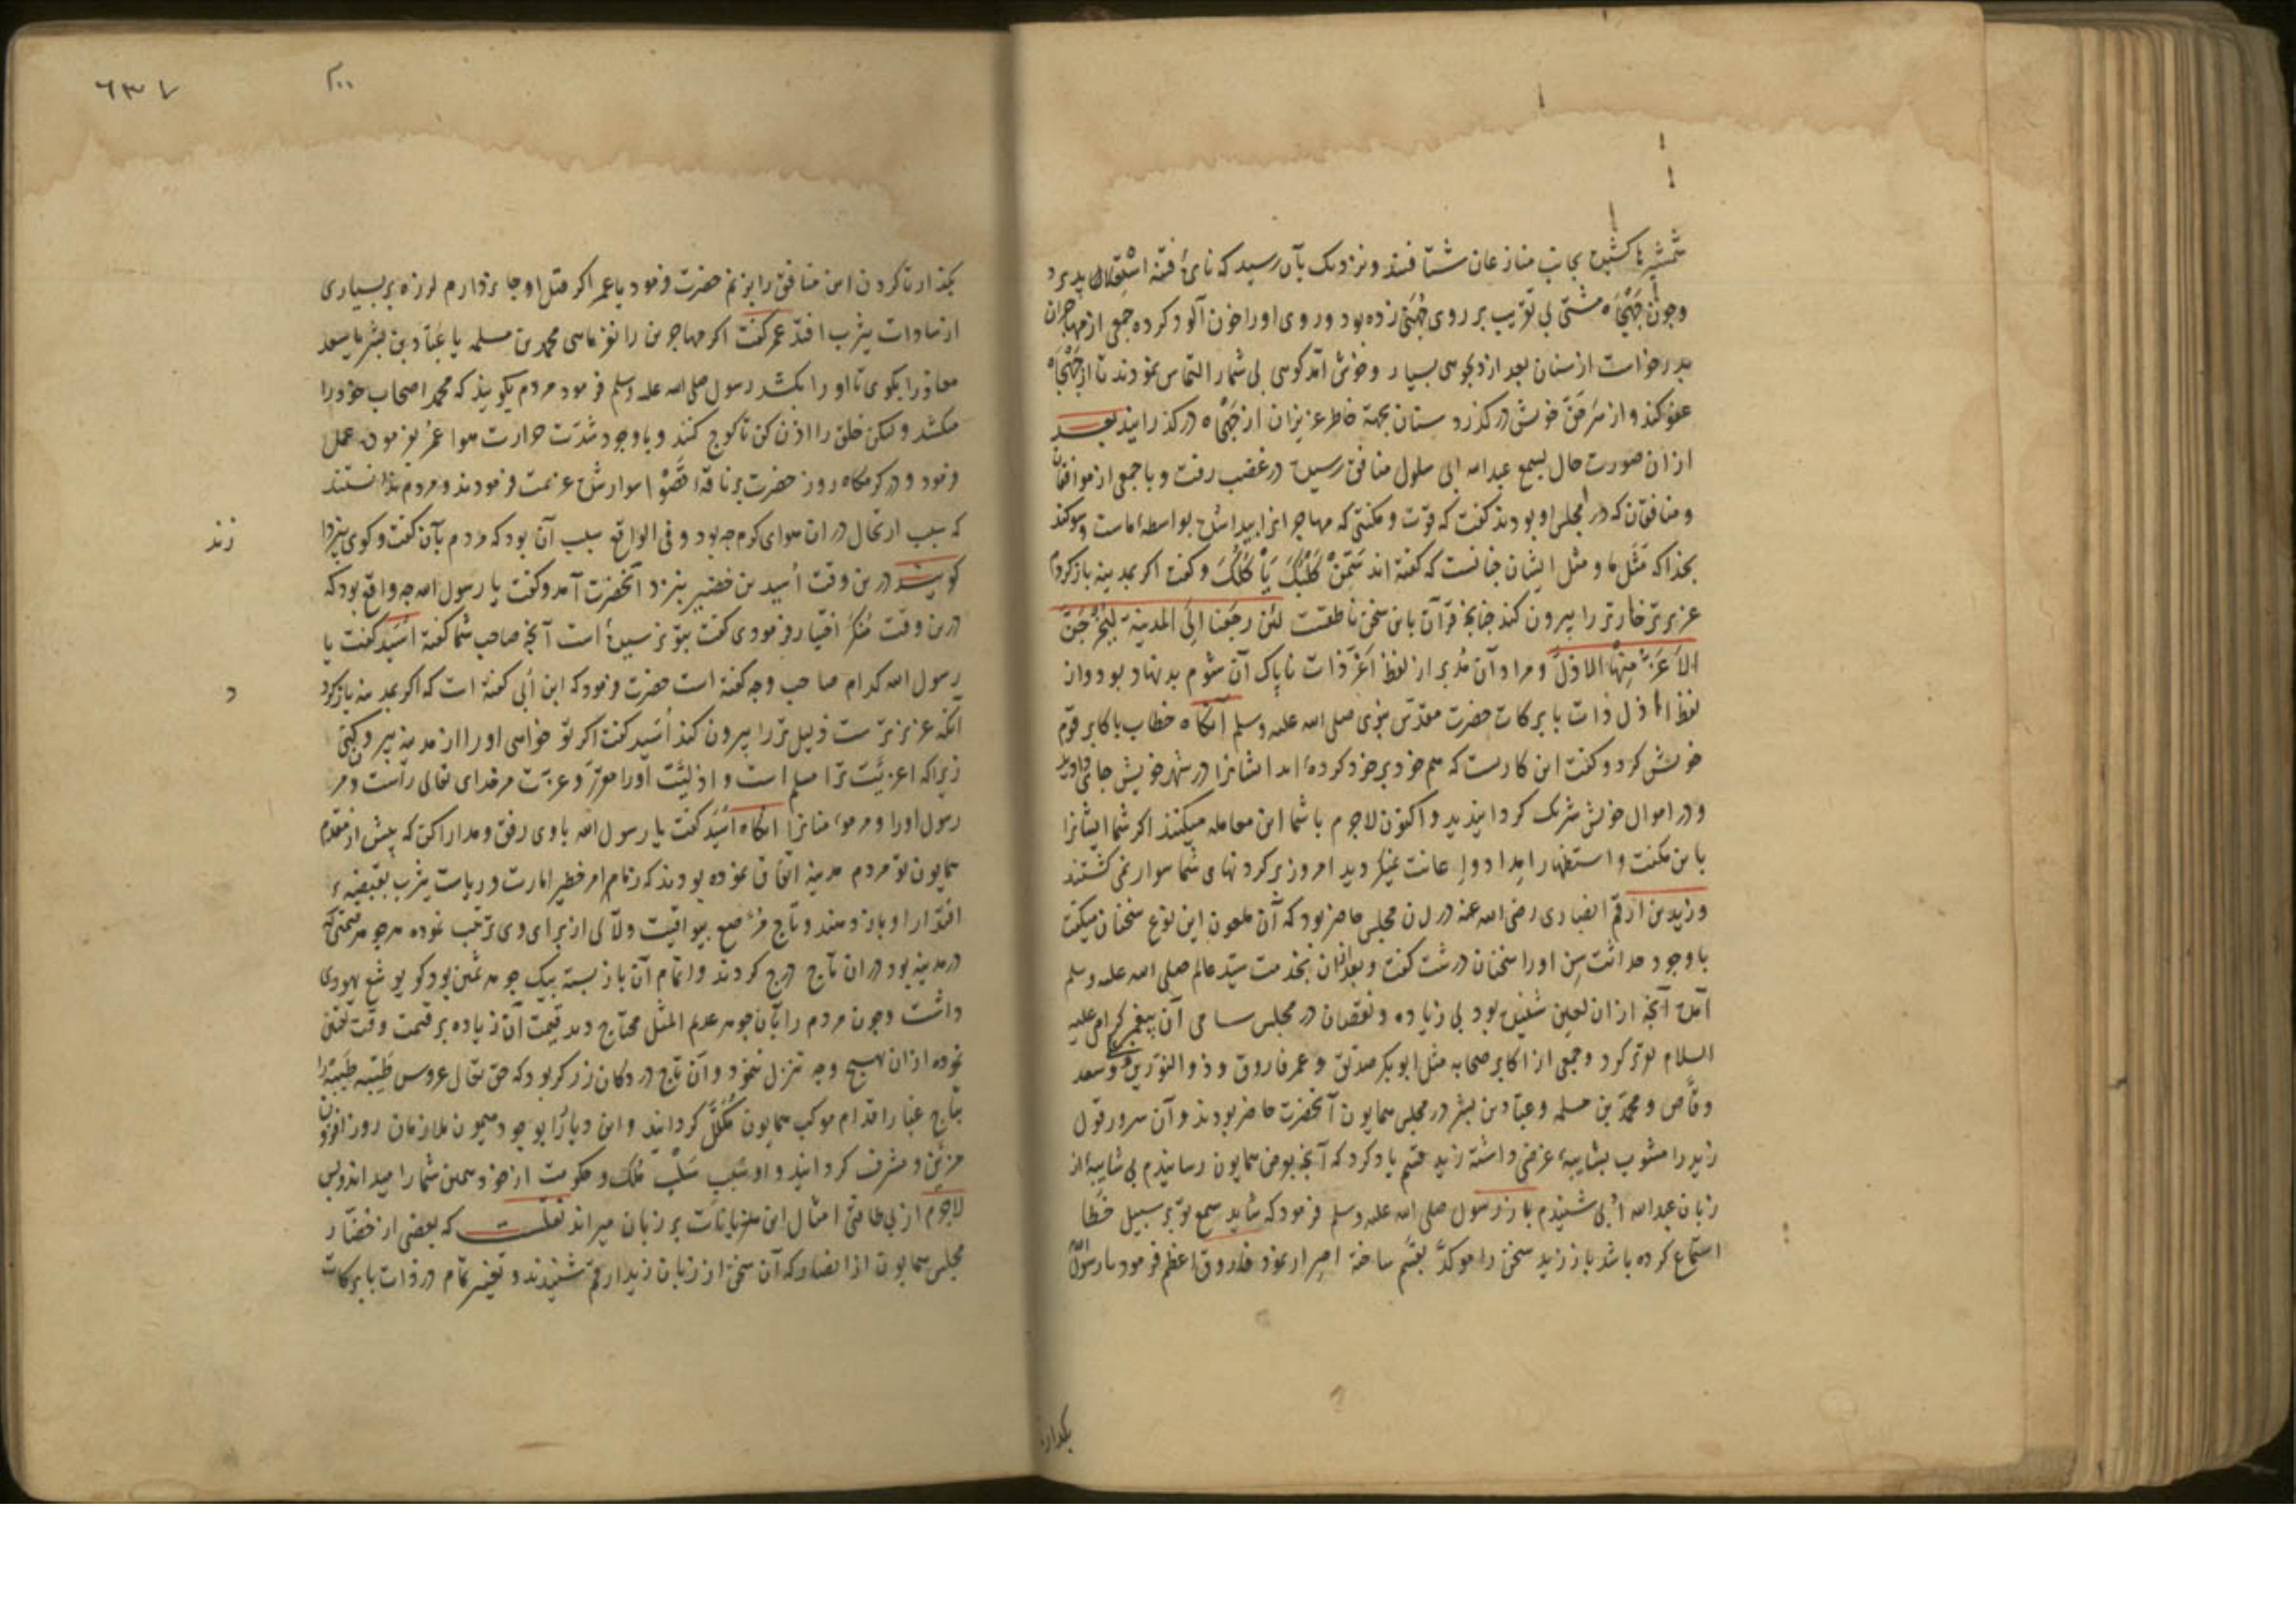 شمشیرها کشیده بجانب منازعان شتافتند و نزدیک بآن رسید که نایرهٔ فتنه اشتعال پذیرد
و چون جهجاه مشتی بی تقریب بر روی جهنی زده بود و روی او را خون آلود کرده جمعی از مهاجران
بدرخواست از سنان بعد از دلجوسی بسیار و خوش آمدگوسی بی شمار التماس نمودند تا از جهجاه
عفو کند و از سر حق خویش درگذرد سنان بجهة خاطر عزیزان از جهجاه درگذرانید بعد
ازان صورت حال بسمع عبدالله ابی سلول منافق رسیده در غضب رفت و با جمعی از موافقان
و منافقان که در مجلس او بودند گفت که قوت و مکنتی که مهاجرانرا پیدا شده بواسطهٔ ماست و سوکند
بخدا که مثل ما و مثل ایشان چنانست که گفته اند سَمِّنْ کَلْبَکَ یَأْکُلْکَ و گفت اکر بمدینه بازکردم
عزیزتر خوارتر را بیرون کند چنانچه قرآن باین سخن ناطقست لئن رجعنا الی المدینة لیخرجن
الاعز منها الاذل و مراد آن مدبر از لفظ اعز ذات ناپاک آن شوم بدنهاد بود و از
لفظ اذل ذات بابرکات حضرت مقدس نبوی صلی الله علیه وسلم آنکاه خطاب باکابر قوم
خویش کرد و گفت این کاریست که هم خود بر خود کرده اید ایشانرا در شهر خویش جای دادید
و در اموال خویش شریک کردانیدید و اکنون لاجرم با شما این معامله میکنند اکر شما ایشانرا
باین مکنت و استظهار امداد و اعانت نمیکردید امروز بر کردنهای شما سوار نمی کشتند
و زید بن ارقم انصاری رضی الله عنه در ان مجلس حاضر بود که آن ملعون این نوع سخنان میکفت
با وجود حداثت سن او را سخنان درشت گفت و بعد ازان بخدمت سید عالم صلی الله علیه وسلم
آمده آنچه ازان لعین شنیده بود بی زیاده و نقصان در مجلس سامی آن پیغمبر کرامی علیه
السلام تقریر کرد و جمعی از اکابر صحابه مثل ابوبکر صدیق و عمر فاروق و ذوالنورین و سعد
وقاص و محمد بن مسلمه و عباد بن بشر در مجلس همایون آنحضرت حاضر بودند و آن سرور قول
زید را مشوب بشایبهٔ غرض داشته زید قسم یاد کرد که آنچه بعرض همایون رسانیدم بی شایبه از
زبان عبدالله ابی شنیدم باز رسول صلی الله علیه وسلم فرمود که شاید سمع تو بر سبیل خطا
استماع کرده باشد باز زید سخن را موکد بقسم ساخته اصرار نمود فاروق اعظم فرمود یا رسول الله
بکذار تا
بکذار تا کردن این منافق را بزنم حضرت فرمود یا عمر اکر قتل او جایز دارم لرزه بر بسیاری
از سادات یثرب افتد عمر گفت اکر مهاجرین را نفرماسی محمد بن مسلمه یا عباد بن بشر یا سعد
معاذ را بکوی تا او را بکشد رسول صلی الله علیه وسلم فرمود مردم بکویند که محمد اصحاب خود را
میکشد ولیکن خلق را اذن کن تا کوچ کنند و با وجود شدت حرارت هوا عمر بفرموده عمل
فرمود و در کرمکاه روز حضرت بر ناقهٔ قصوا سوار شده عزیمت فرمودند و مردم ندانستند
که سبب ارتحال در ان هوای کرم چه بود و فی الواقع سبب آن بود که مردم بآن گفت و کوی نپردازند
کویند درین وقت اسید بن حضیر بنزد آنحضرت آمد و گفت یا رسول الله چه واقع بود که
درین وقت منکر اختیار فرمودی گفت بتو نرسیده است آنچه صاحب شما گفته اسید گفت یا
رسول الله کدام صاحب و چه گفته است حضرت فرمود که ابن ابی گفته است که اکر بمدینه بازکردد
آنکه عزیزتر است ذلیل تر را بیرون کند اسید گفت اکر تو خواسی او را از مدینه بیرون کنی
زیراکه اعزیت ترا مسلم است و اذلیت او را مقرر و عزت مر خدای تعالی راست و مر
رسول او را و مر مومنانرا آنکاه اسید گفت یا رسول الله با وی رفق و مدارا کن که پیش از مقدم
همایون تو مردم مدینه اتفاق نموده بودند که زمام امر خطیر امارت و ریاست یثرب بقبضهٔ
اقتدار او بازدهند و تاج مرصع بیواقیت و لآلی از برای وی ترتیب نموده هر جوهر قیمتی که
در مدینه بود در ان تاج درج کردند و اتمام آن بازبسته بیک جوهر ثمین بود کو یوشع یهودی
داشت و چون مردم را بآن جوهر عدیم المثل محتاج دید قیمت آن زیاده بر قیمت وقت تعیین
نموده ازان بهیچ وجه تنزل ننمود و آن تاج در دکان زرکر بود که حق تعالی عروس طیبهٔ طیبه را
بتاج غبار اقدام موکب همایون مکلل کردانید و این دیار را بوجود میمون ملازمان روز افزون
مزین و مشرف کردانید و او سبب سلب ملک و حکومت از خود همین شما را میداند و بس
لاجرم از بی طاقتی امثال این هذیانات بر زبان میراند نقلست که بعضی از حضار
مجلس همایون از انصار که آن سخن از زبان زید ارقم شنیدند و تغیر تمام در ذات بابرکات
زند
د
۶۳۷
۳۰۰